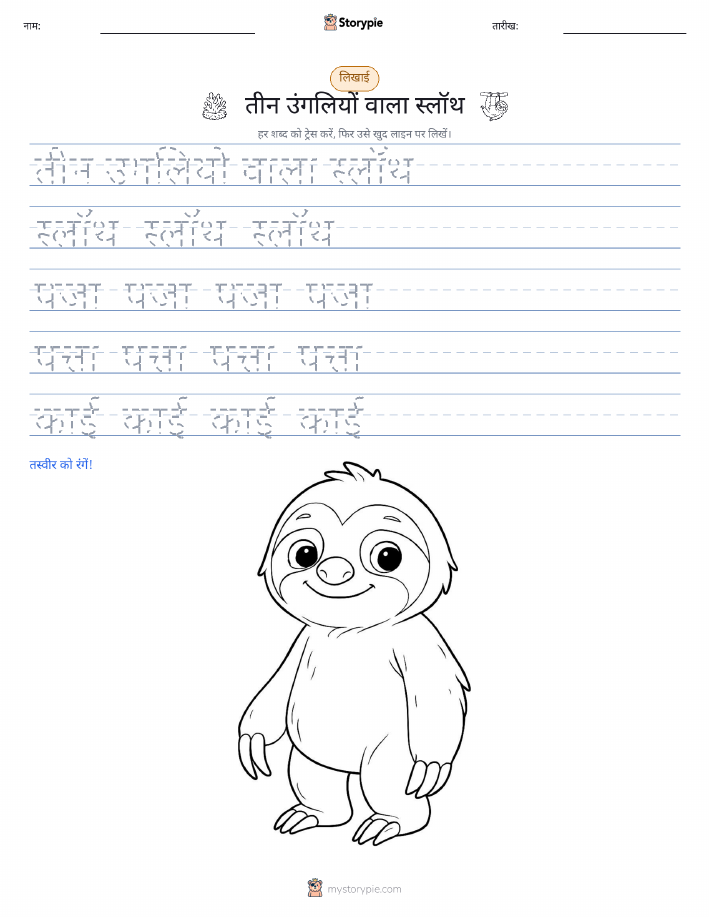 नाम:
Storypie
तारीख:
लिखाई
तीन उंगलियों वाला स्लॉथ
हर शब्द को ट्रेस करें, फिर उसे खुद लाइन पर लिखें।
तीन उंगलियों वाला स्लॉथ
स्लॉथ स्लॉथ स्लॉथ
पंजा पंजा पंजा पंजा
पत्ता पत्ता पत्ता पत्ता
काई काई काई काई
तस्वीर को रंगें!
mystorypie.com